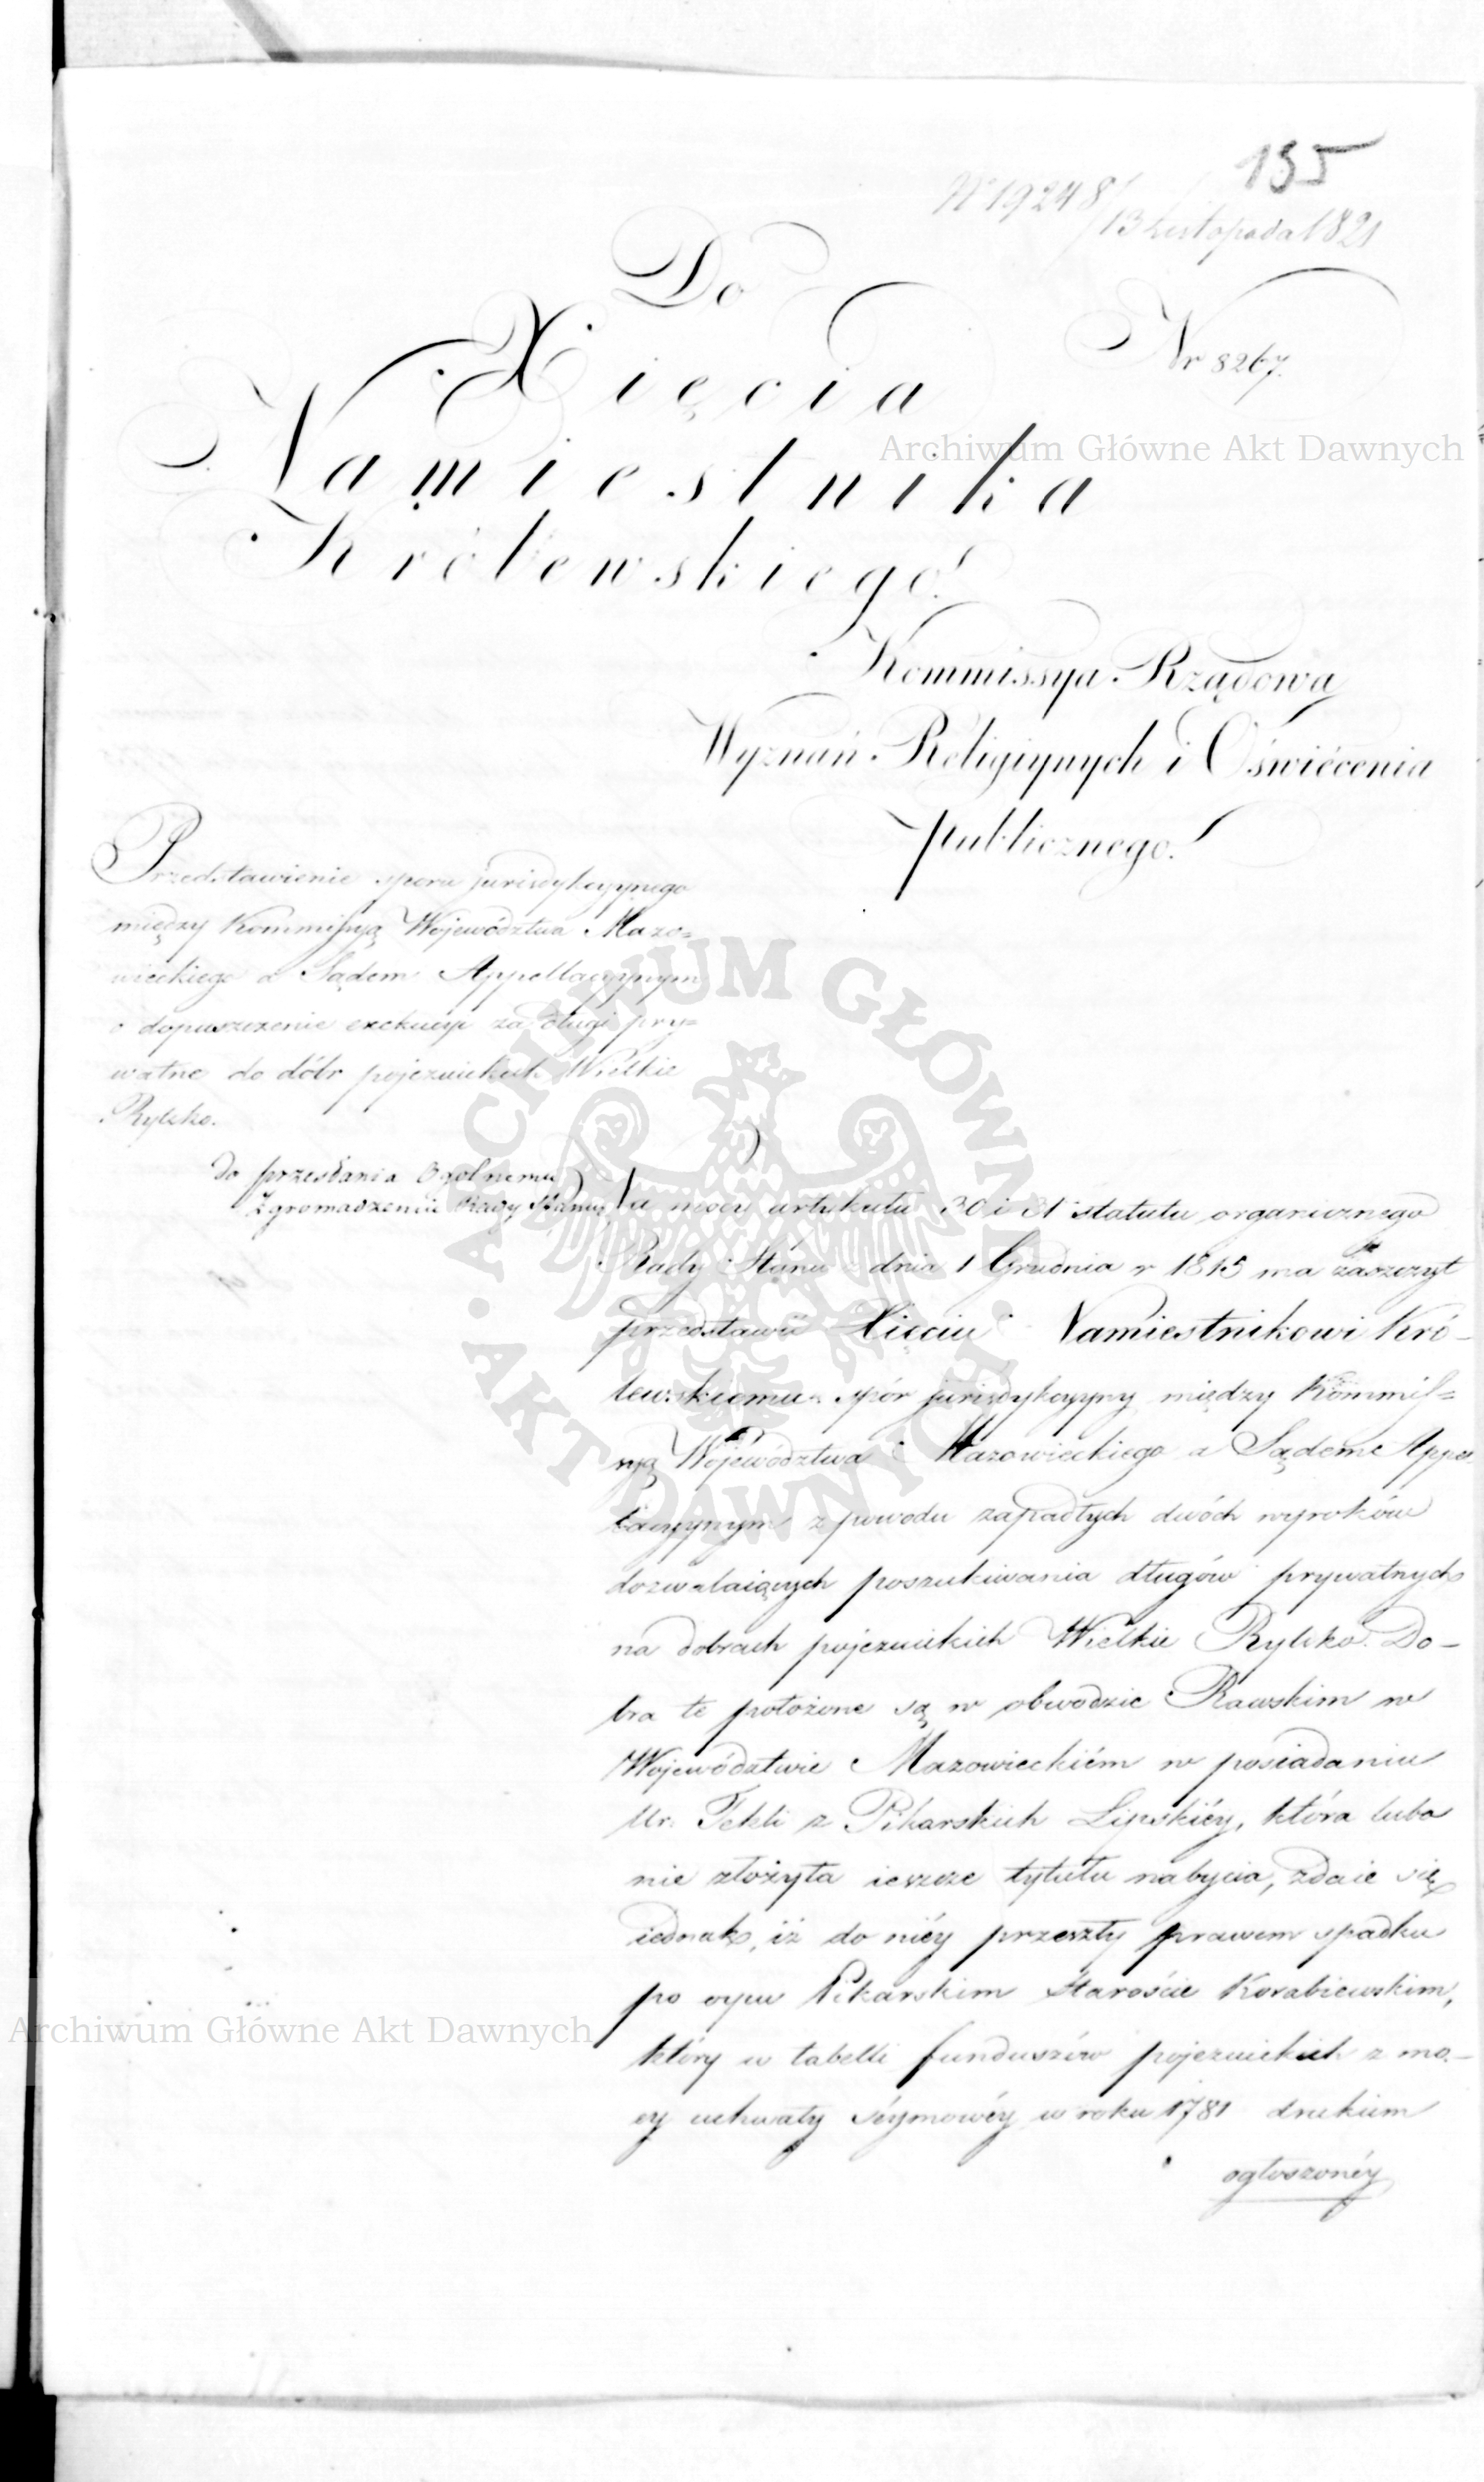 135
N 19248/
13 Listopada 1821
Do
Nr 8267.
Xięcia
Archiwum Główne Akt Dawnych
Namiestnika
Królewskiego!
Kommissya Rządowa
Wyznań Religiynych i Oświécenia
publicznego!
Przedstawienie sporu jurisdykcyynego
między Kommissyą Województwa Mazo=
wieckiego a Sądem Appellacyynym
o dopuszczenie exekucyi za długi pry=
watne do dóbr pojezuickich Wielkie
Rylsko.
do przesłania Ogolnemu
Zgromadzeniu Rady Stanu
Na mocy artykułu 30 i 31 statutu organicznego
Rady Stanu z dnia 1 Grudnia r 1815 ma zaszczyt
przedstawić Xięciu Namiestnikowi Kró-
lewskiemu spór jurisdykcyyny między Kommis=
syą Województwa Mazowieckiego a Sądem Appel
lacyynym z powodu zapadłych dwóch wyroków
dozwalaiących poszukiwania długów prywatnych
na dobrach pojezuickich Wielkie Rylsko. Do-
bra te położone są w obwodzie Rawskim w
Województwie Mazowieckiém w posiadaniu
Ur. Tekli z Pikarskich Lipskiéy, która lubo
nie złożyła ieszcze tytułu nabycia, zdaie się
iednak, iż do niéy przeszły prawem spadku
po oycu Pikarskim Staroście Korabiewskim,
Archiwum Główne Akt Dawnych
który w tabelli funduszów pojezuickich z mo-
cy uchwały séymowéy w roku 1781 drukiem
ogłoszonéy
ARCHIWUM GŁÓWNE
AKT DAWNYCH